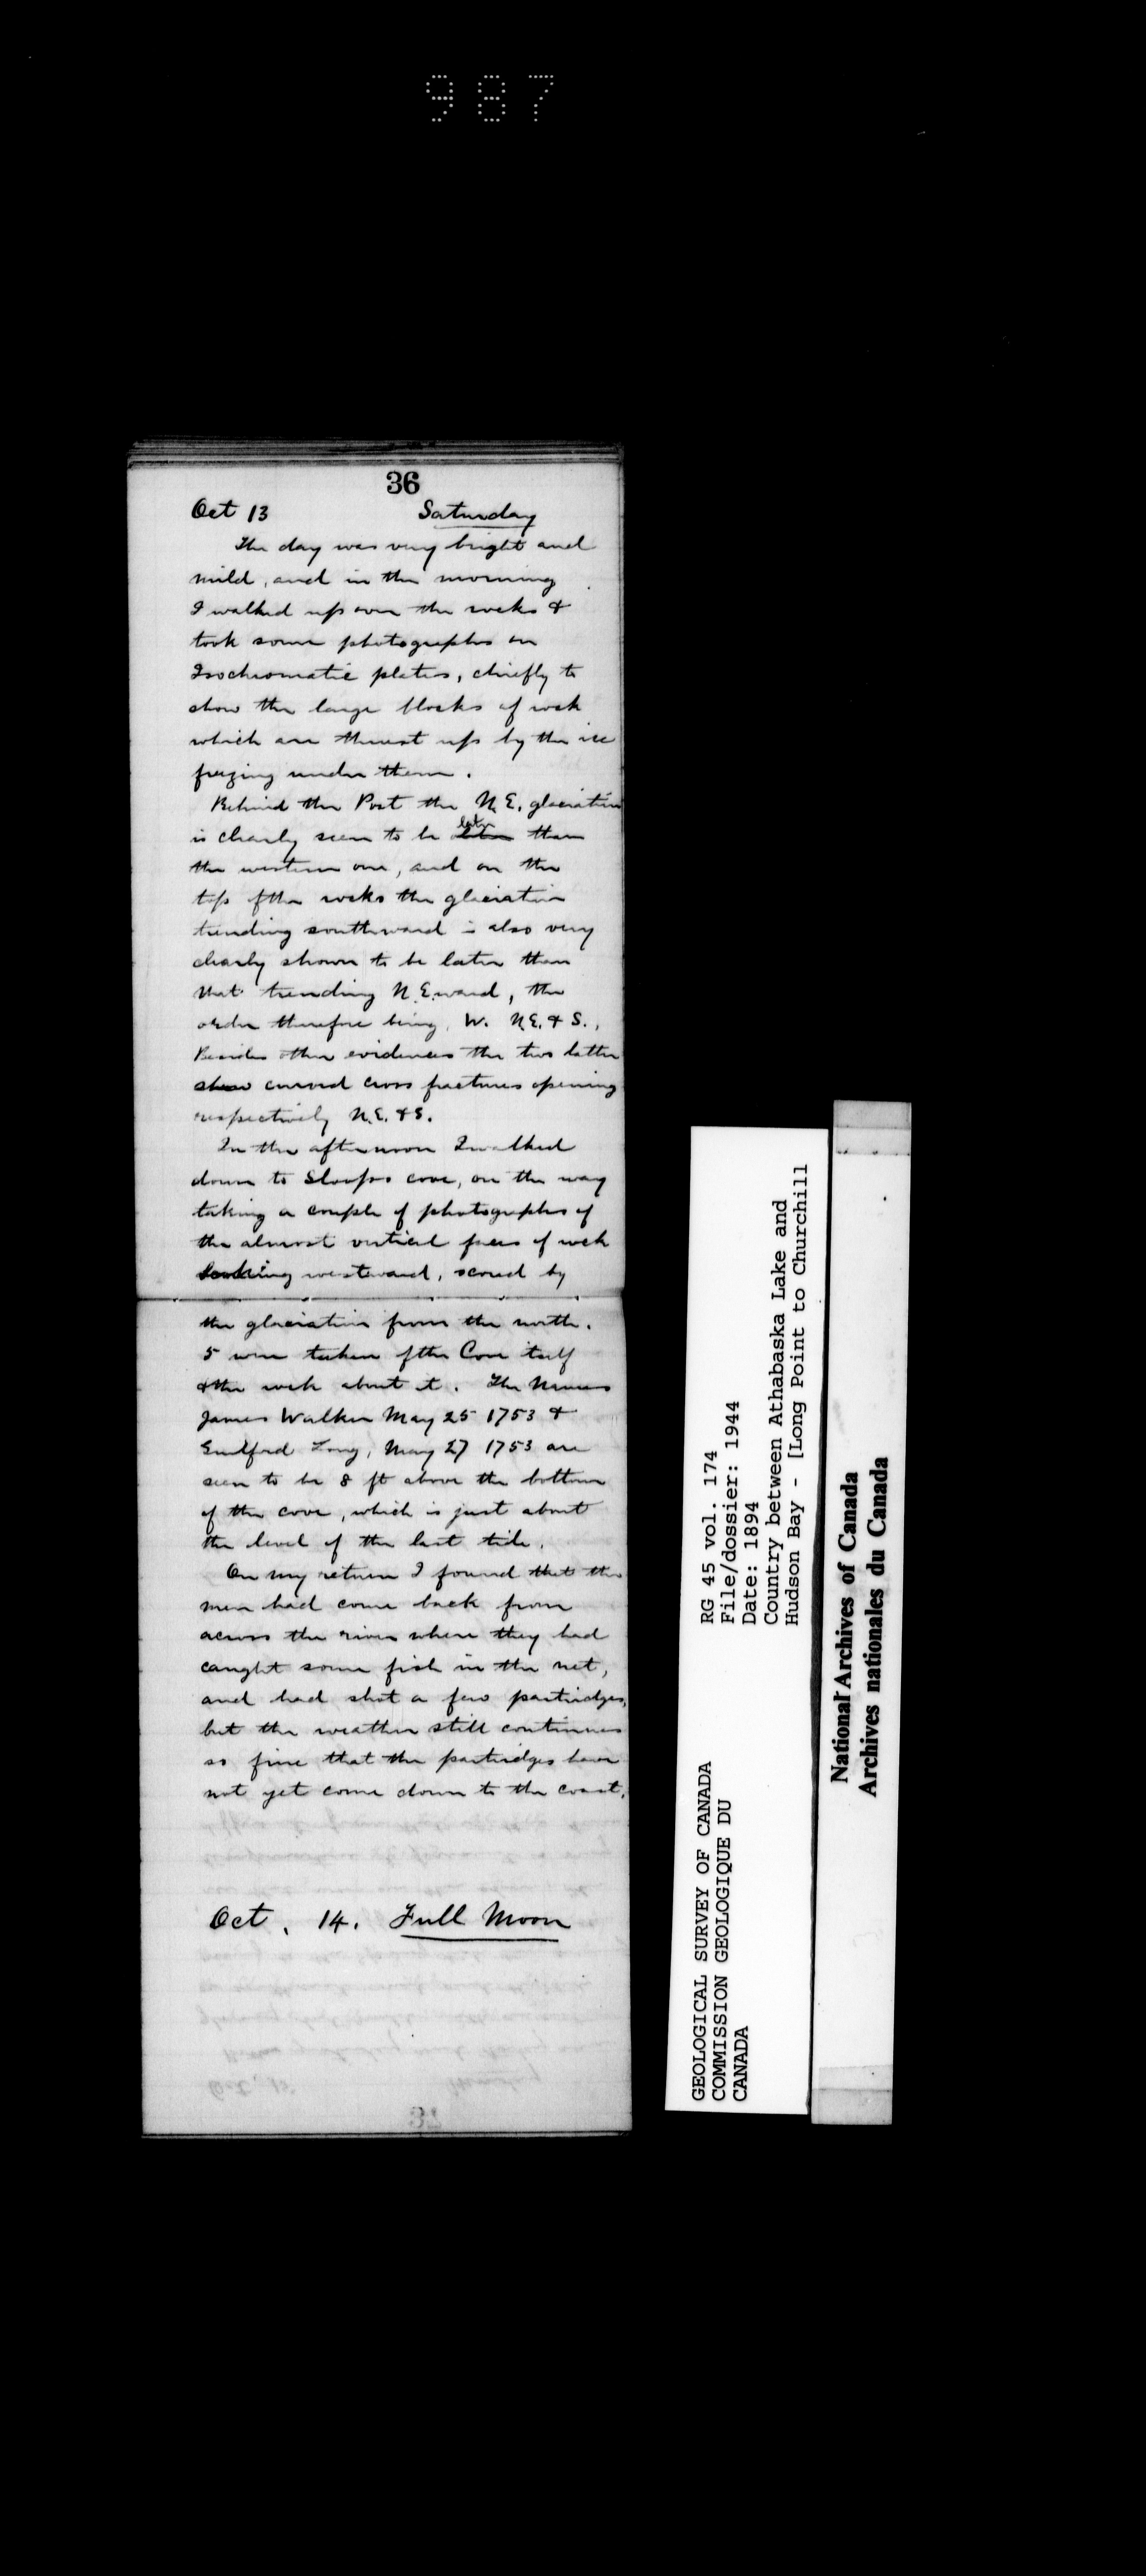 987
36
Oct 13 Saturday
The day was very bright and
mild, and in the morning
I walked up over the rocks &
took some photographs on
Isochromatic plates, chiefly to
show the large blocks of rock
which are thrust up by the ice
freezing under them.
Behind the Post the N.E. glaciation
later
is clearly seen to be than
the western one, and on the
top of the rocks the glaciation
trending southward is also very
clearly shown to be later than
that trending N.E.ward, the
order therefore being, W. N.E. & S.,
Besides other evidences the two latter
show curved cross fractures opening
respectively N.E. & S.
In the afternoon I walked
down to Sloops cove, on the way
taking a couple of photographs of
the almost vertical faces of rock
looking westward, scored by
the glaciation from the north.
5 were taken of the Cove itself
& the rock about it. The names
James Walker May 25 1753 &
Guilford Long, May 27 1753 are
seen to be 8 ft above the bottom
of the cove, which is just about
the level of the last tide.
On my return I found that the
men had come back from
across the river where they had
caught some fish in the net,
and had shot a few partridges,
but the weather still continues
so fine that the partridges have
not yet come down to the coast.
Oct. 14. Full Moon
GEOLOGICAL SURVEY OF CANADA
COMMISSION GEOLOGIQUE DU
CANADA
RG 45 vol. 174
File/dossier: 1944
Date: 1894
Country between Athabaska Lake and
Hudson Bay - [Long Point to Churchill
National Archives of Canada
Archives nationales du Canada